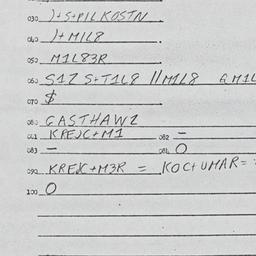 030 )+S+PIL KOSTN
040 )+MIL8
050 M1L83R
060 S1Z S+T1L8 //M1L8 GM1L
070 $
080 GASTHAWZ
081 KREJC+M1 082 -
083 - 084 O
090 KREJC+M3R = KOC+UMAR=
100 O